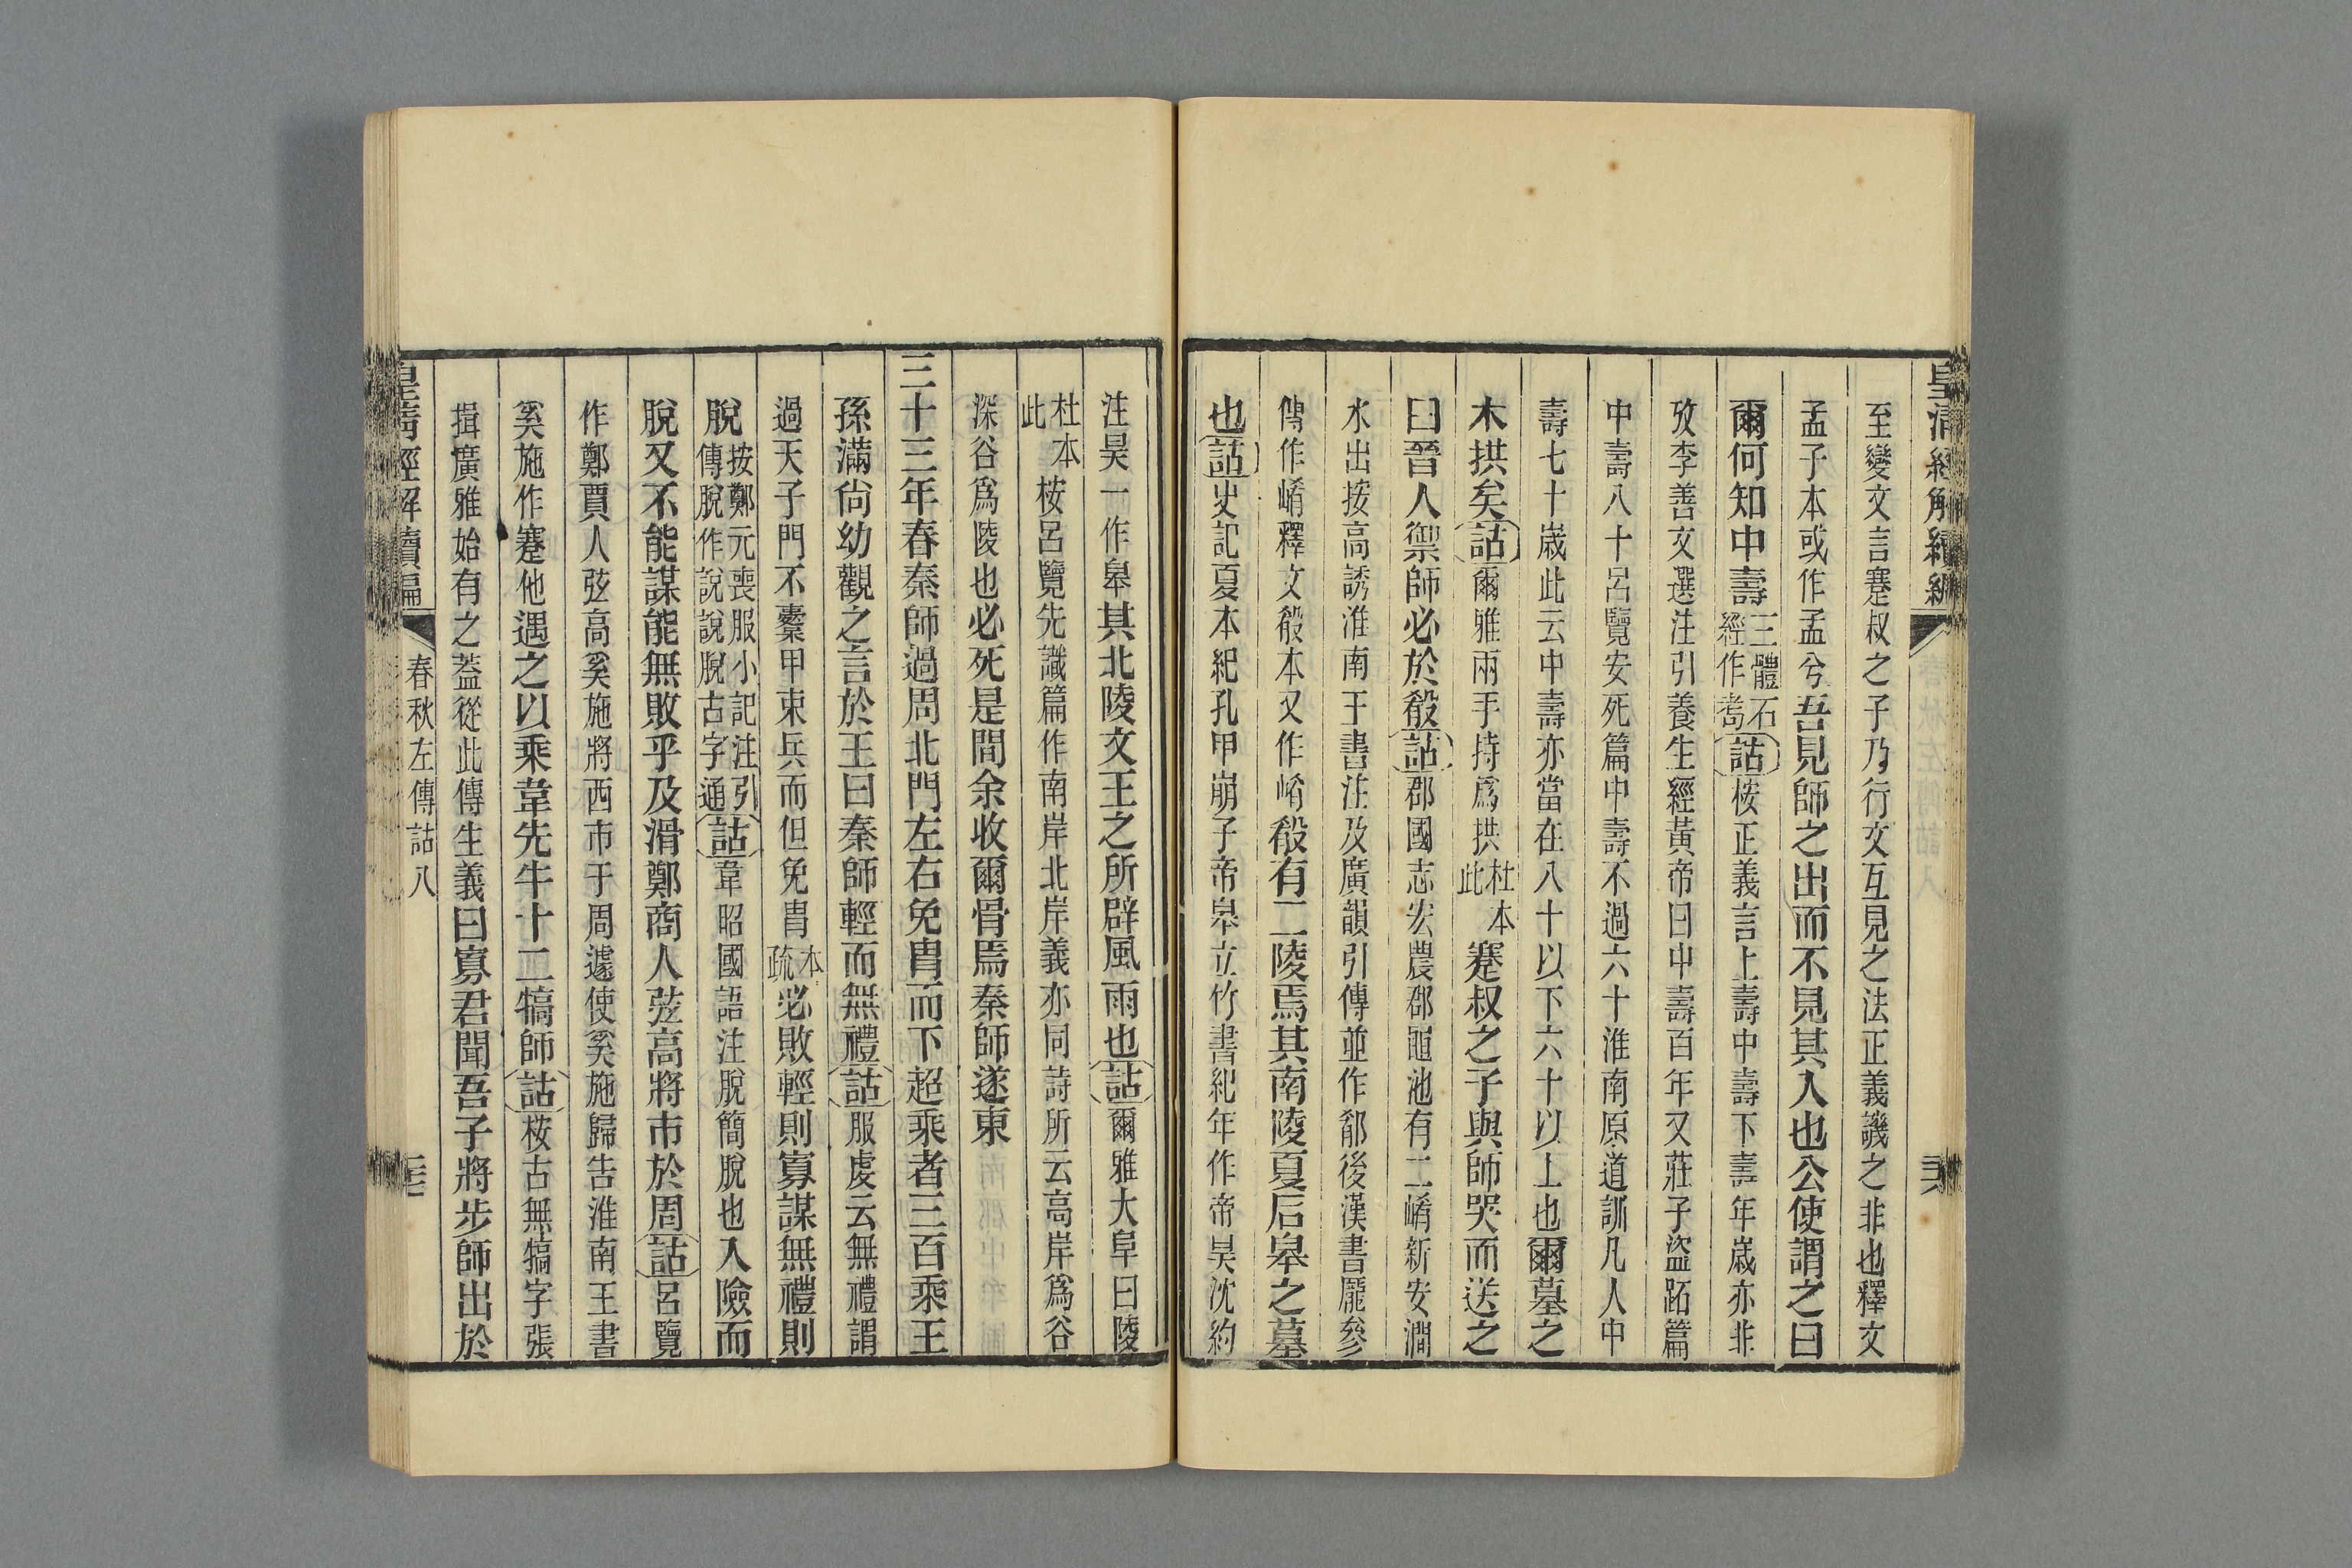 皇清經解續編
至變文言蹇叔之子乃行文互見之法正義譏之非也釋文
孟子本或作孟兮吾見師之出而不見其入也公使謂之曰
爾何知中壽三體石經作耆詁桉正義言上壽中壽下壽年歲亦非
攷李善文選注引養生經黃帝曰中壽百年又莊子盜跖篇
中壽八十呂覽安死篇中壽不過六十淮南原道訓凡人中
壽七十歲此云中壽亦當在八十以下六十以上也爾墓之
木拱矣詁爾雅兩手持爲拱杜本此蹇叔之子與師哭而送之
曰晉人禦師必於殽詁郡國志宏農郡黽池有二崤新安澗
水出按高誘淮南王書注及廣韻引傳並作郩後漢書龐參
傳作崤釋文殽本又作崤殽有二陵焉其南陵夏后皋之墓
也詁史記夏本紀孔甲崩子帝皋立竹書紀年作帝昊沈約
注昊一作皋其北陵文王之所辟風雨也詁爾雅大阜曰陵
杜本此桉呂覽先識篇作南岸北岸義亦同詩所云高岸爲谷
深谷爲陵也必死是間余收爾骨焉秦師遂東
三十三年春秦師過周北門左右免胄而下超乘者三百乘王
孫滿尙幼觀之言於王曰秦師輕而無禮詁服虔云無禮謂
過天子門不櫜甲束兵而但免胄本疏必敗輕則寡謀無禮則
脫按鄭元喪服小記注引傳脫作說說脫古字通詁韋昭國語注脫簡脫也入險而
脫又不能謀能無敗乎及滑鄭商人弦高將市於周詁呂覽
作鄭賈人弦高奚施將西市于周遽使奚施歸告淮南王書
奚施作蹇他遇之以乘韋先牛十二犒師詁桉古無犒字張
揖廣雅始有之蓋從此傳生義曰寡君聞吾子將步師出於
皇清經解續編
春秋左傳詁八